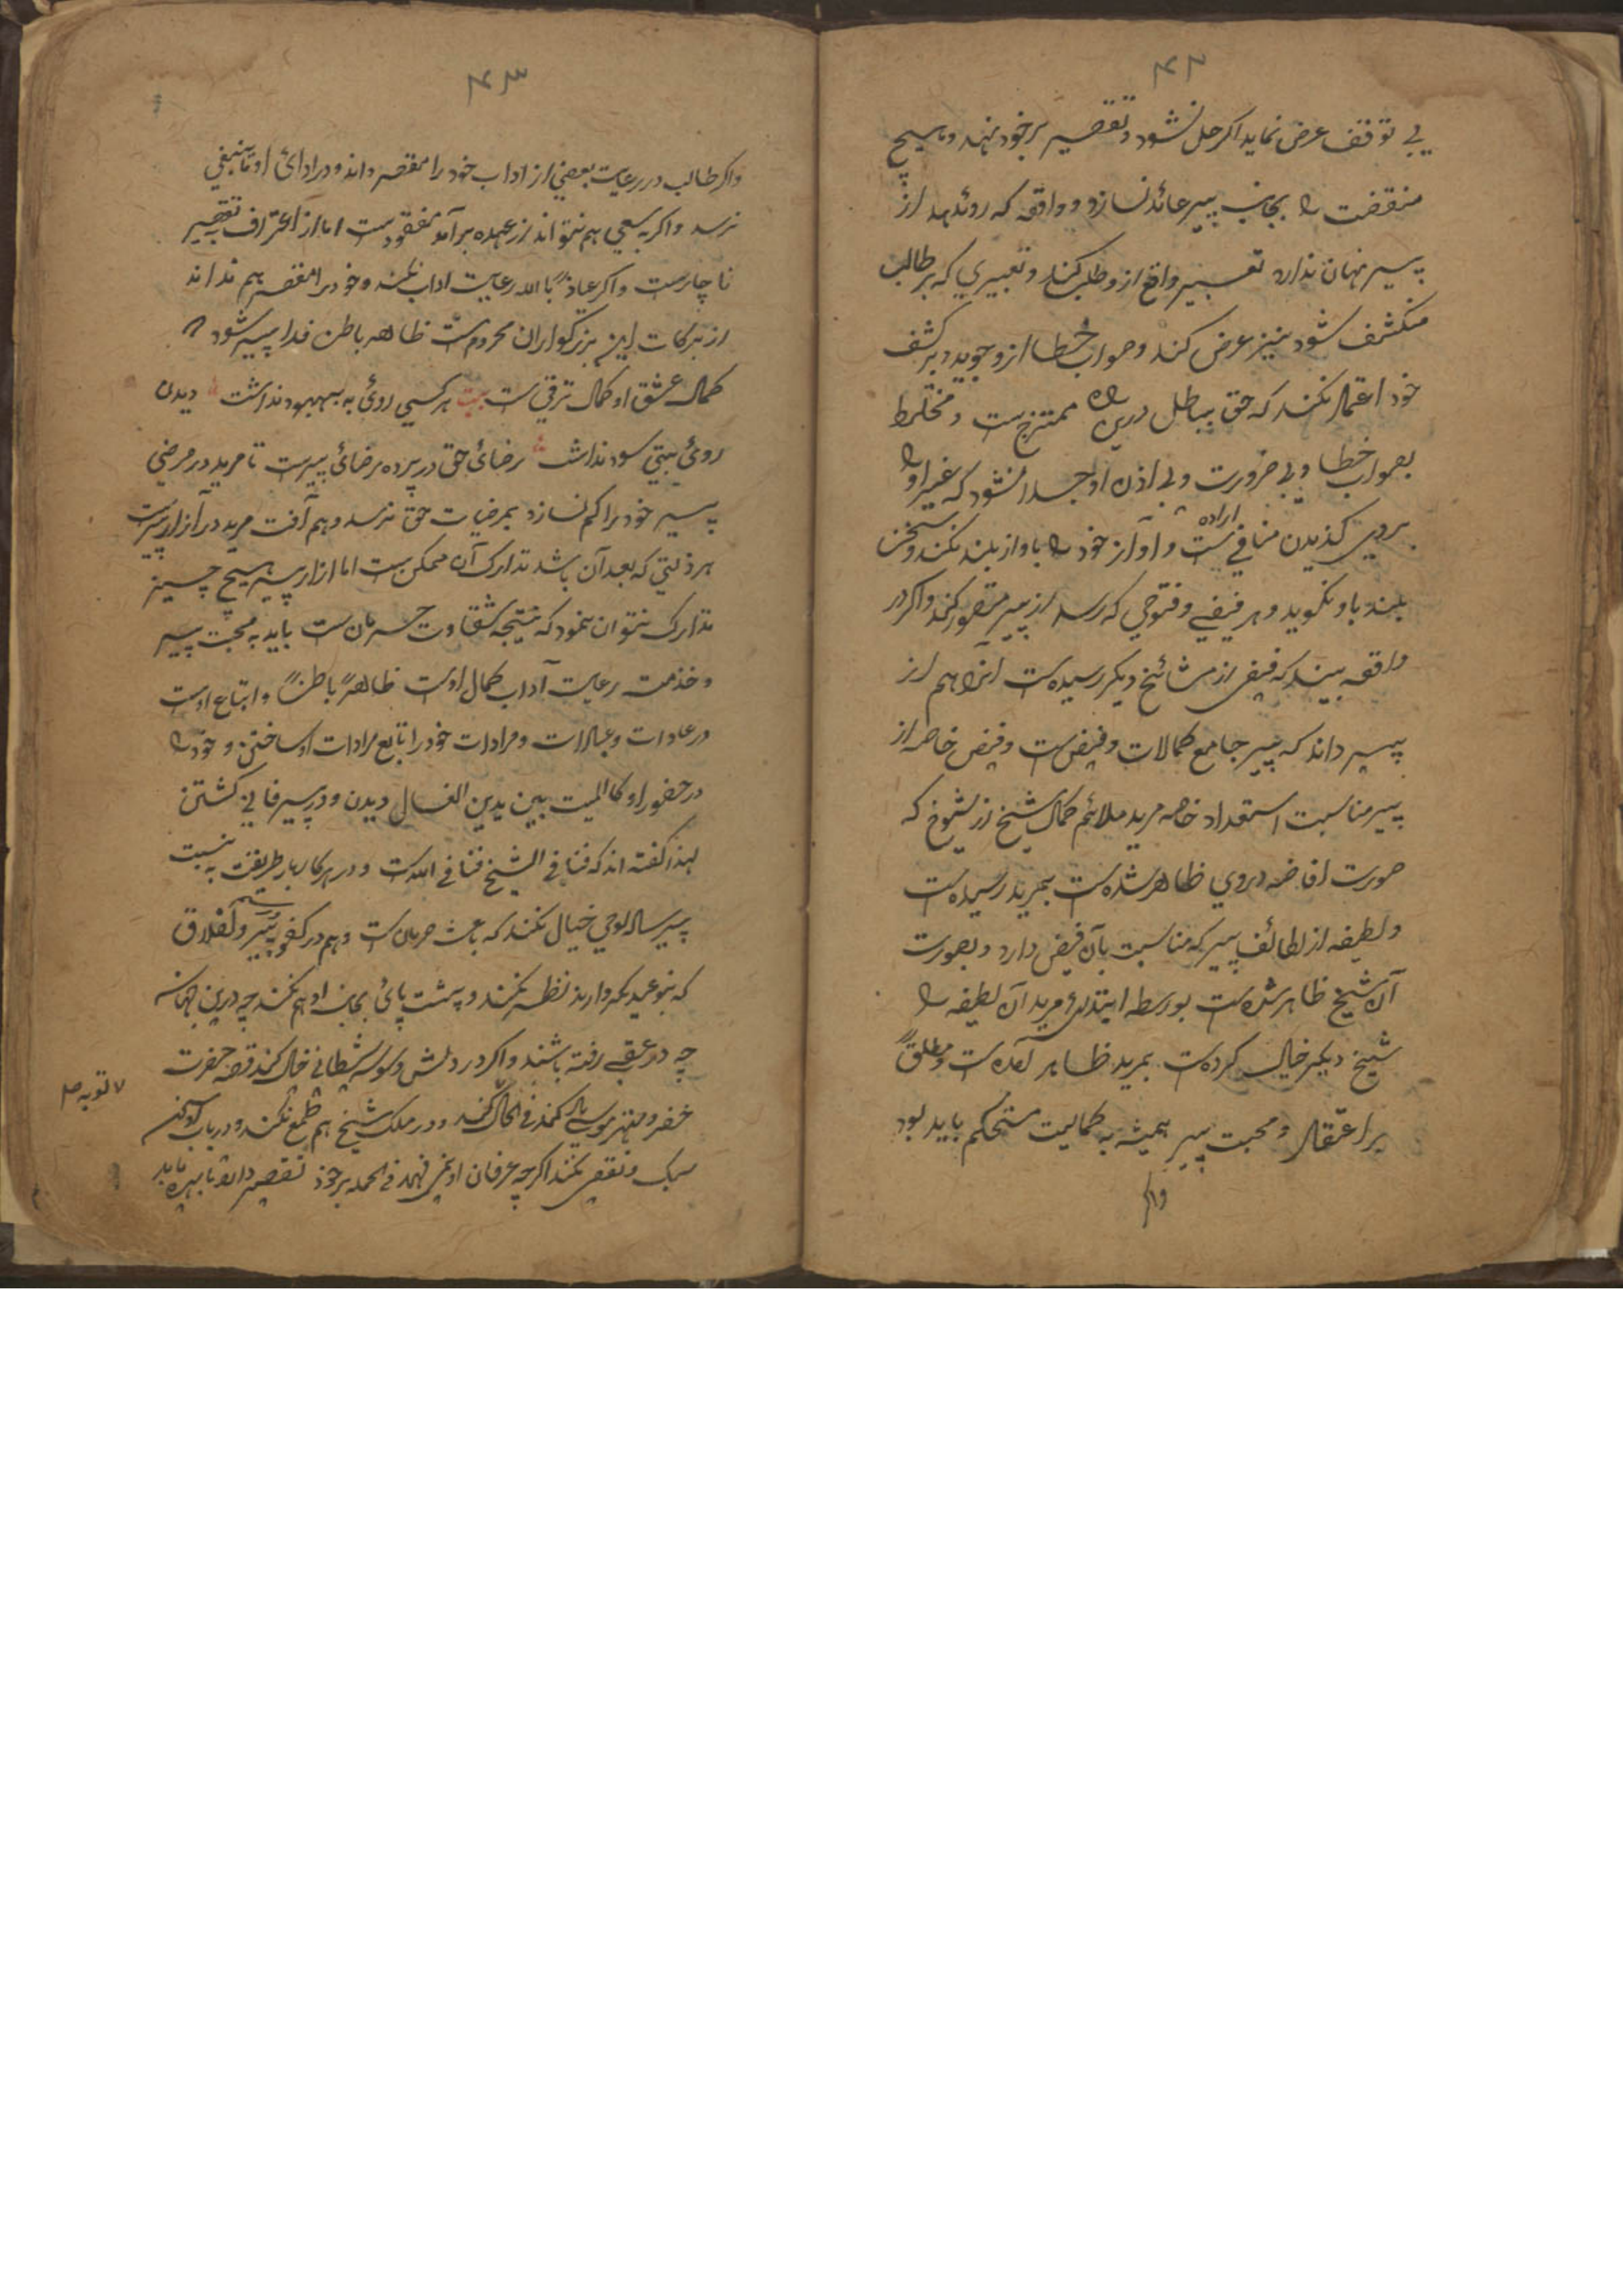 ۴۲
بی توقف عرض نماید اکر حل نشود تقصیر بر خود نهد و هیچ
منقضت را بجانب پیر عائد نسازد و واقعه که روئدهد از
پیر نهان ندارد تعبیر واقع ازو طلب کند و تعبیری که بر طالب
منکشف شود نیز عرض کند و صواب خطا ازو جوید و بر کشف
خود اعتماد نکند که حق بباطل درین راه ممتزج ست و مختلط
بصواب خطا و بی ضرورت و بی اذن او جدا نشود که غیر او را
بر وی کذیدن منافی اراده ست و آواز خود را باواز بلند نکند و سخن
بلند باو نکوید و هر فیضی و فتوحی که رسد از پیر تصور کند و اکر در
واقعه بیند که فیض از مشائخ دیکر رسیده ست انرا هم از
پیر داند که پیر جامع کمالات و فیض ست و فیض خاصه از
پیر مناسبت استعداد خاصه مرید ملائم کمال شیخ از شیوخ که
صورت افاضه دروی ظاهر شده ست بمرید رسیده ست
و لطیفه از لطائف پیر که مناسبت بآن فیض دارد و بصورت
آن شیخ ظاهر شده ست بواسطه ابتلای مرید آن لطیفه را
شیخ دیکر خیال کرده ست بمرید ظاهر آمده ست و مطلق
بر اعتقاد و محبت پیر همیشه به کمالیت مستحکم باید بود
واکر
۴۳
واکر طالب در رعایت بعضی از اداب خود را مقصر داند و در ادائ او تا ینبغی
نرسد و اکر بسعی هم نتواند از عهده بر آمد مفقودست اما از اعتراف بتقصیر
ناچارست و اکر عیاذً باالله رعایت اداب نکند و خود را مقصر هم نداند
از برکات این بزرکواران محروم ست ظاهر باطن فدا پیر شود
کمال عشق او کمال ترقی ست بیت هر کسی روئ به بهبود نداشت دیدن
روئ نبی سود نداشت رضائ حق در پرده رضائ پیرست تا مرید در مرضی
پیر خود را کم نسازد بمرضیات حق نرسد و هم آفت مرید در آزار پیرست
هر ذلتی که بعد آن باشد تدارک آن ممکن ست اما ازار پیر هیچ چیز
تدارک نتوان نمود که نتیجه شقاوت حرمان ست باید به محبت پیر
و خدمت رعایت آداب کمال اوست ظاهرً باطنً و اتباع اوست
در عادات و عبادات و مرادات خود را تابع مرادات او ساختن و خود را
در حضور او کالمیت بین یدین الغسال دیدن و در پیر فانی کشتن
لهذا کفته اند که فنا فی الشیخ فنا فی الله ست و در هر کار بار طریقت به نسبت
پیر ساده لوحی خیال نکند که باعث حرمان ست و هم در کفو پیر و اخلاق
که بنوعیکه دارند نظر نکند و پشت پائ بجانب او هم نکند چه درین جهان
چه در عقبی رفته باشند و اکر در دلش وسوسه شیطانی خیال کند قصه حضرت
خضر و مهتر موسی یاد کند فی الحال و در ملک شیخ هم طمع نکند و در باب
سبک و نقص نکند اکرچه عرفان او نمی فهمد فی الجمله بر خود تقصیر داند تا بهره یابد
لا توبه صل